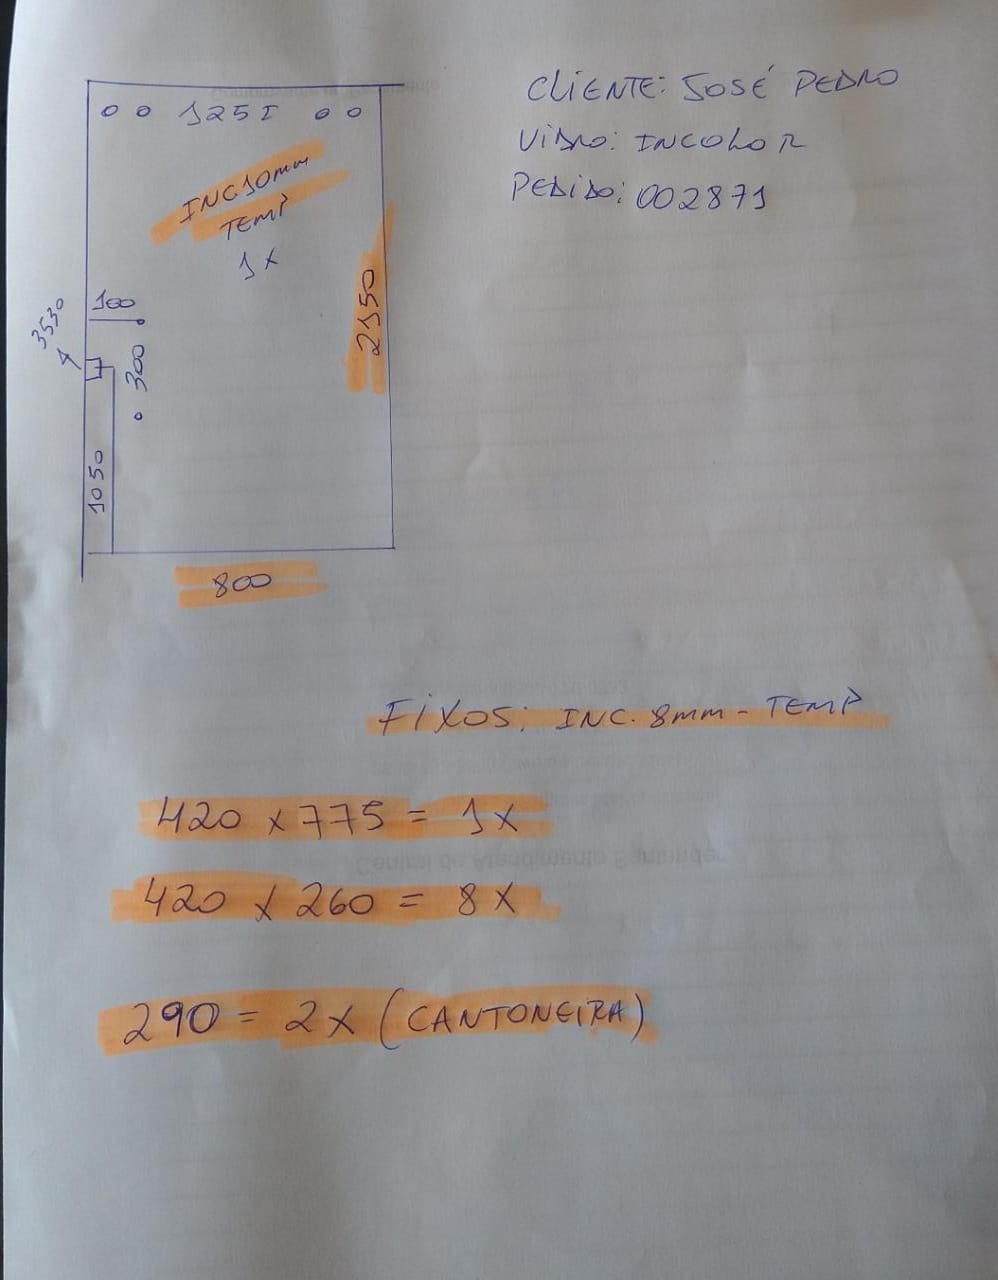 CLIENTE: JOSÉ PEDRO
VIDRO: INCOLOR
PEDIDO: 002871
125I
INC10mm
TEMP
1X
2150
100
3530
300
1050
800
FIXOS: INC. 8mm - TEMP
420 x 775 = 1X
420 x 260 = 8X
290 = 2X (CANTONEIRA)